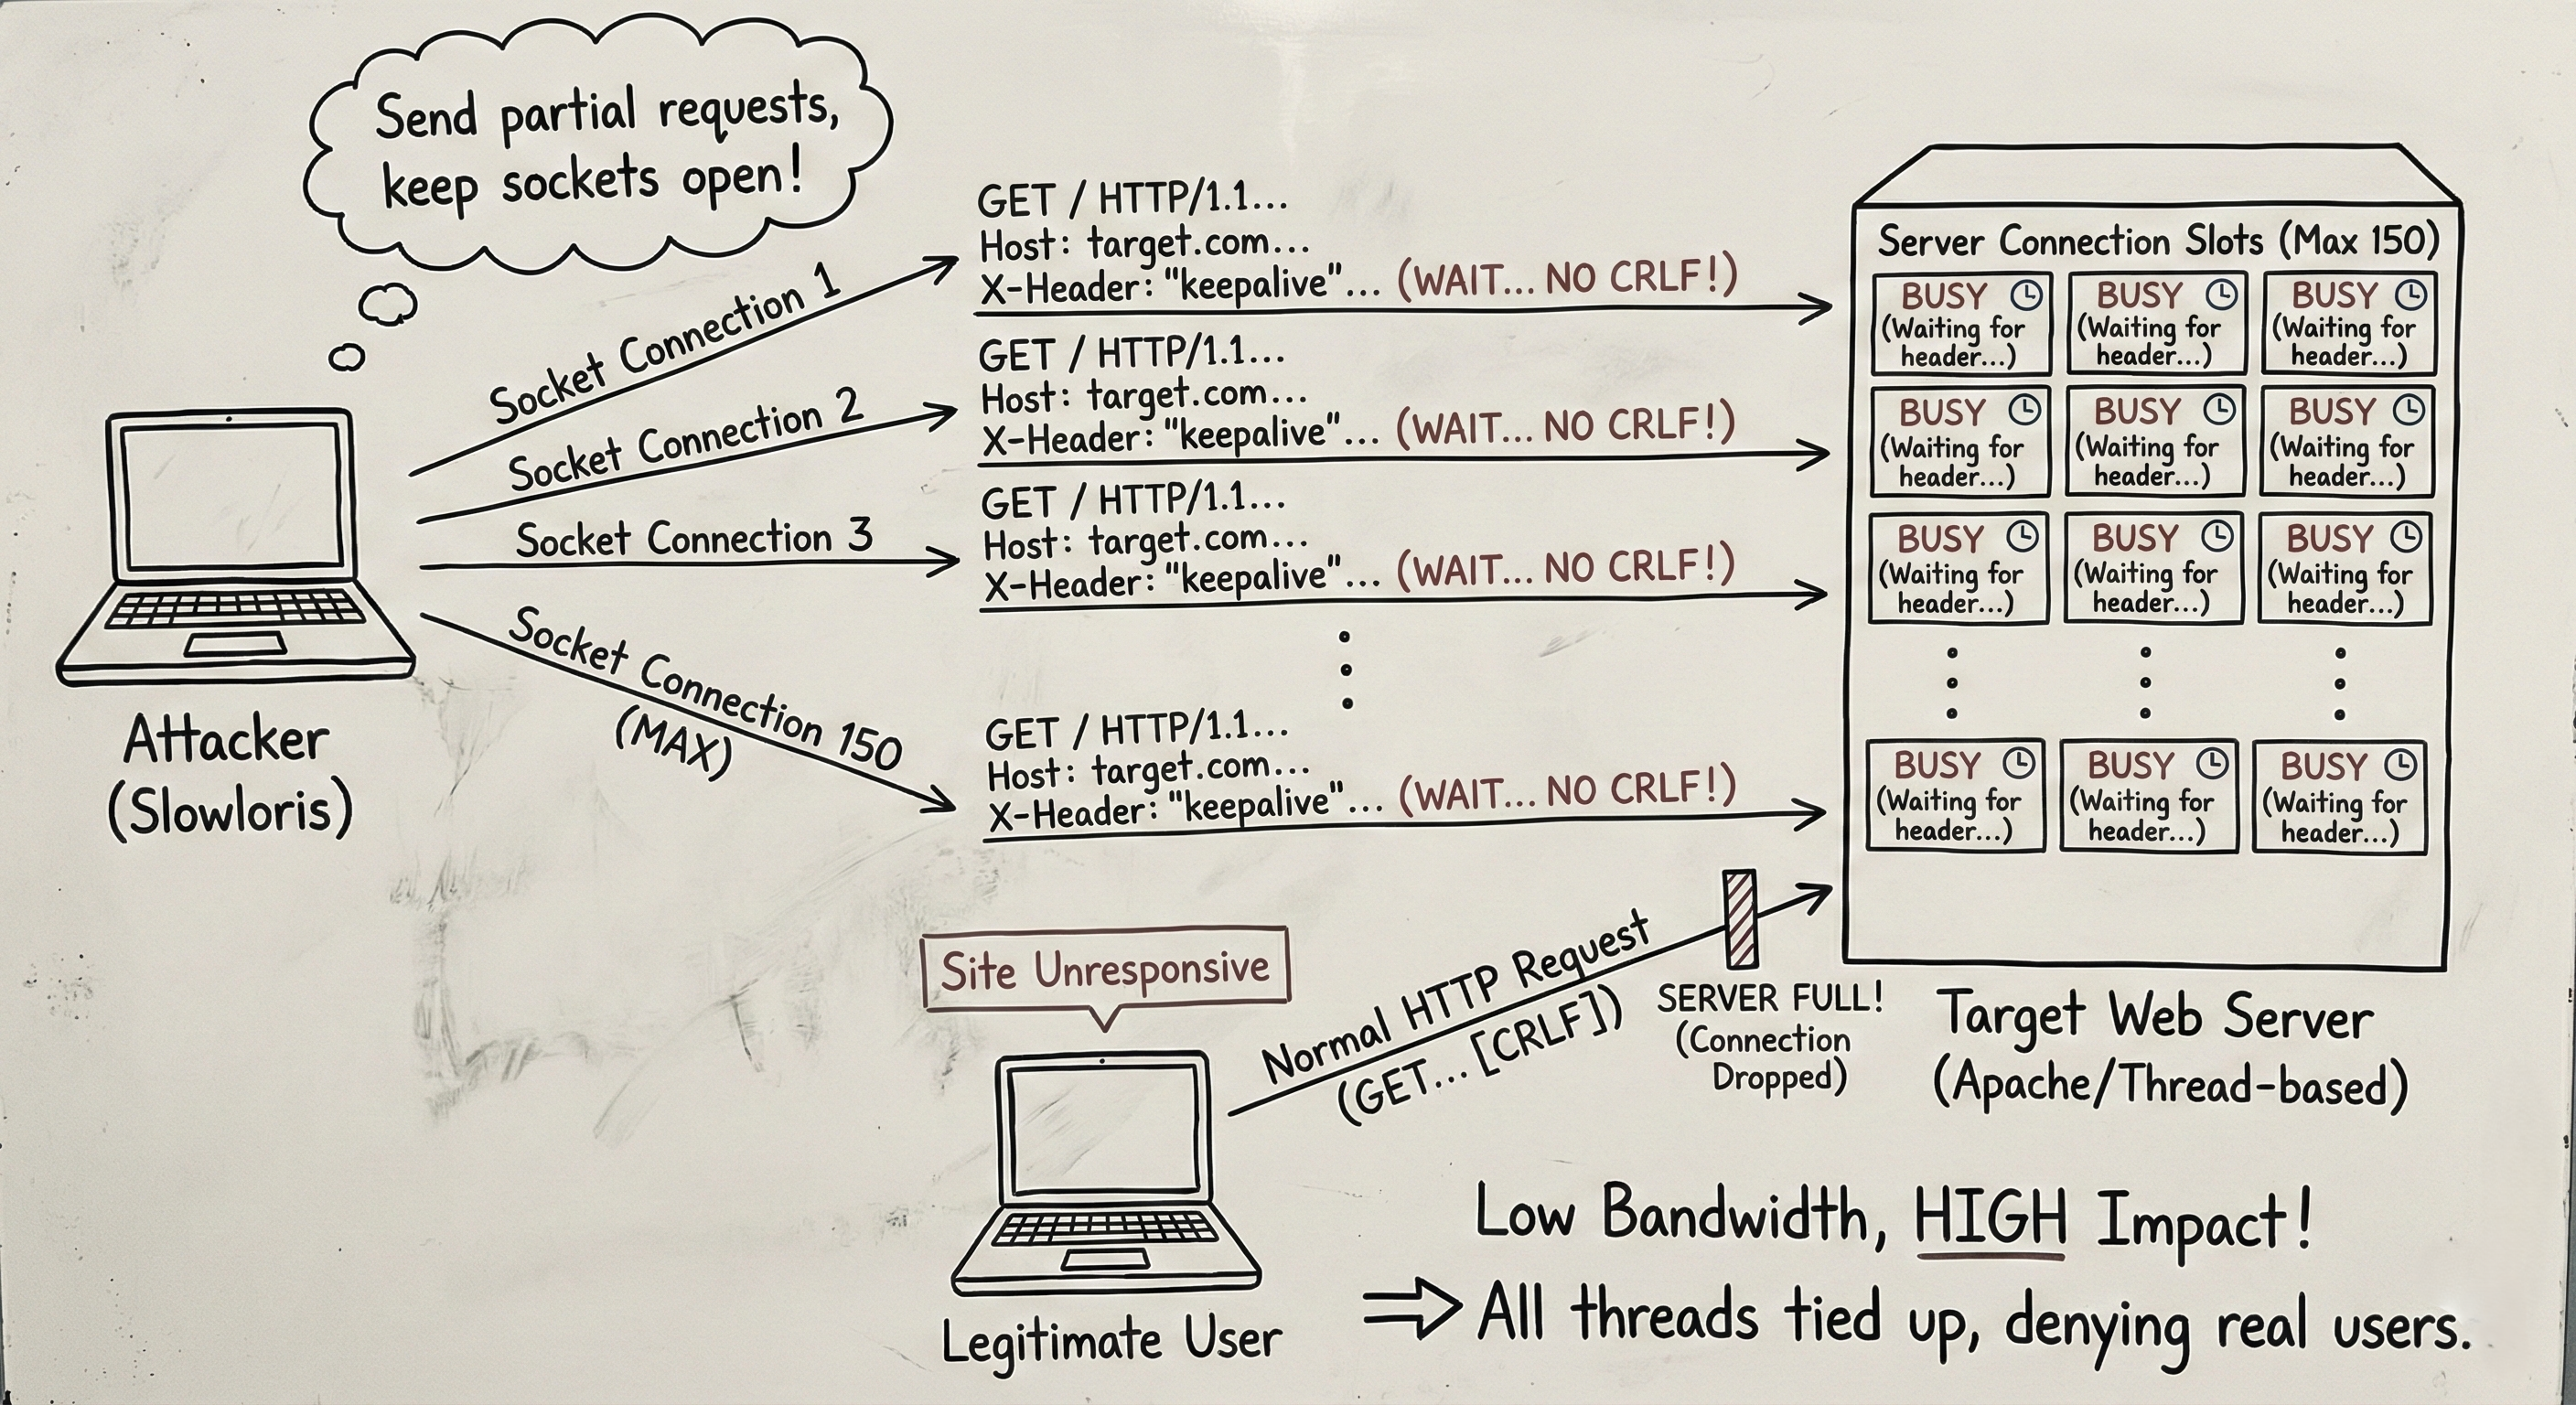 Send partial requests,
keep sockets open!
Socket Connection 1
Socket Connection 2
Socket Connection 3
Socket Connection 150
(MAX)
Attacker
(Slowloris)
GET / HTTP/1.1...
Host: target.com...
X-Header: "keepalive"... (WAIT... NO CRLF!)
GET / HTTP/1.1...
Host: target.com...
X-Header: "keepalive"... (WAIT... NO CRLF!)
GET / HTTP/1.1...
Host: target.com...
X-Header: "keepalive"... (WAIT... NO CRLF!)
GET / HTTP/1.1...
Host: target.com...
X-Header: "keepalive"... (WAIT... NO CRLF!)
Server Connection Slots (Max 150)
BUSY
(Waiting for
header...)
BUSY
(Waiting for
header...)
BUSY
(Waiting for
header...)
BUSY
(Waiting for
header...)
BUSY
(Waiting for
header...)
BUSY
(Waiting for
header...)
BUSY
(Waiting for
header...)
BUSY
(Waiting for
header...)
BUSY
(Waiting for
header...)
BUSY
(Waiting for
header...)
BUSY
(Waiting for
header...)
BUSY
(Waiting for
header...)
Target Web Server
(Apache/Thread-based)
Site Unresponsive
Legitimate User
Normal HTTP Request
(GET... [CRLF])
SERVER FULL!
(Connection
Dropped)
Low Bandwidth, HIGH Impact!
⇒ All threads tied up, denying real users.